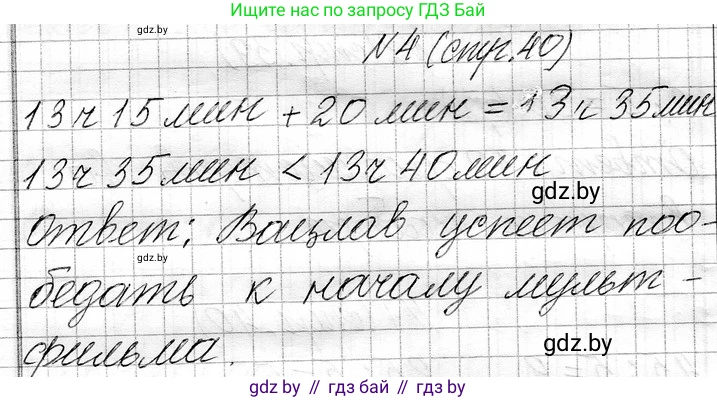 Ищите нас по запросу ГДЗ Бай
gdz.by
N4 (стр.40)
13ч 15мин + 20 мин = 13ч 35мин
13ч 35мин < 13ч 40мин
gdz.by
Ответ: Вацлав успеет поо-
gdz.by
бедать к началу мульт-
фильма.
gdz.by
gdz.by // гдз бай // gdz.by